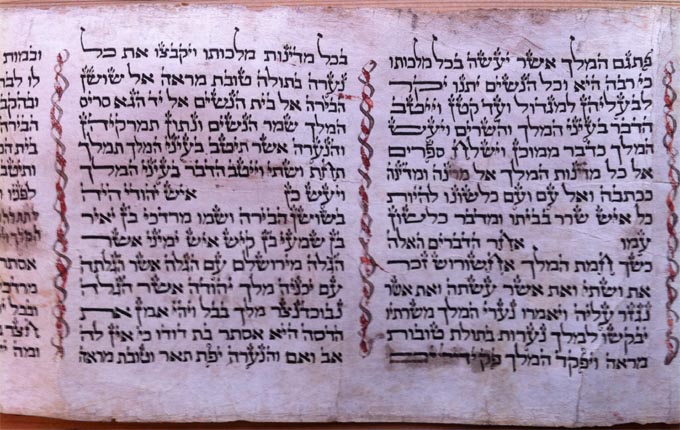 פתגם המלך אשר יעשה בכל מלכותו
כי רבה היא וכל הנשים יתנו יקר
לבעליהן למגדול ועד קטן וייטב
הדבר בעיני המלך והשרים ויעש
המלך כדבר ממוכן וישלח ספרים
אל כל מדינות המלך אל מדינה ומדינה
ככתבה ואל עם ועם כלשונו להיות
כל איש שרר בביתו ומדבר כלשון
עמו אחר הדברים האלה
כשך חמת המלך אחשורוש זכר
את ושתי ואת אשר עשתה ואת אשר
נגזר עליה ויאמרו נערי המלך משרתיו
יבקשו למלך נערות בתולת טובות
מראה ויפקד המלך פקידים
בכל מדינות מלכותו ויקבצו את כל
נערה בתולה טובת מראה אל שושן
הבירה אל בית הנשים אל יד הגא סריס
המלך שמר הנשים ונתון תמרקיהן
והנערה אשר תיטב בעיני המלך תמלך
תחת ושתי וייטב הדבר בעיני המלך
ויעש כן איש יהודי היה
בשושן הבירה ושמו מרדכי בן יאיר
בן שמעי בן קיש איש ימיני אשר
הגלה מירושלים עם הגלה אשר הגלתה
עם יכניה מלך יהודה אשר הגלה
נבוכדנצר מלך בבל ויהי אמן את
הדסה היא אסתר בת דודו כי אין לה
אב ואם והנערה יפת תאר וטובת מראה
ובמות
לו לבת
הבירה
ותיטב
לפניו ו
אסתר
ומה י